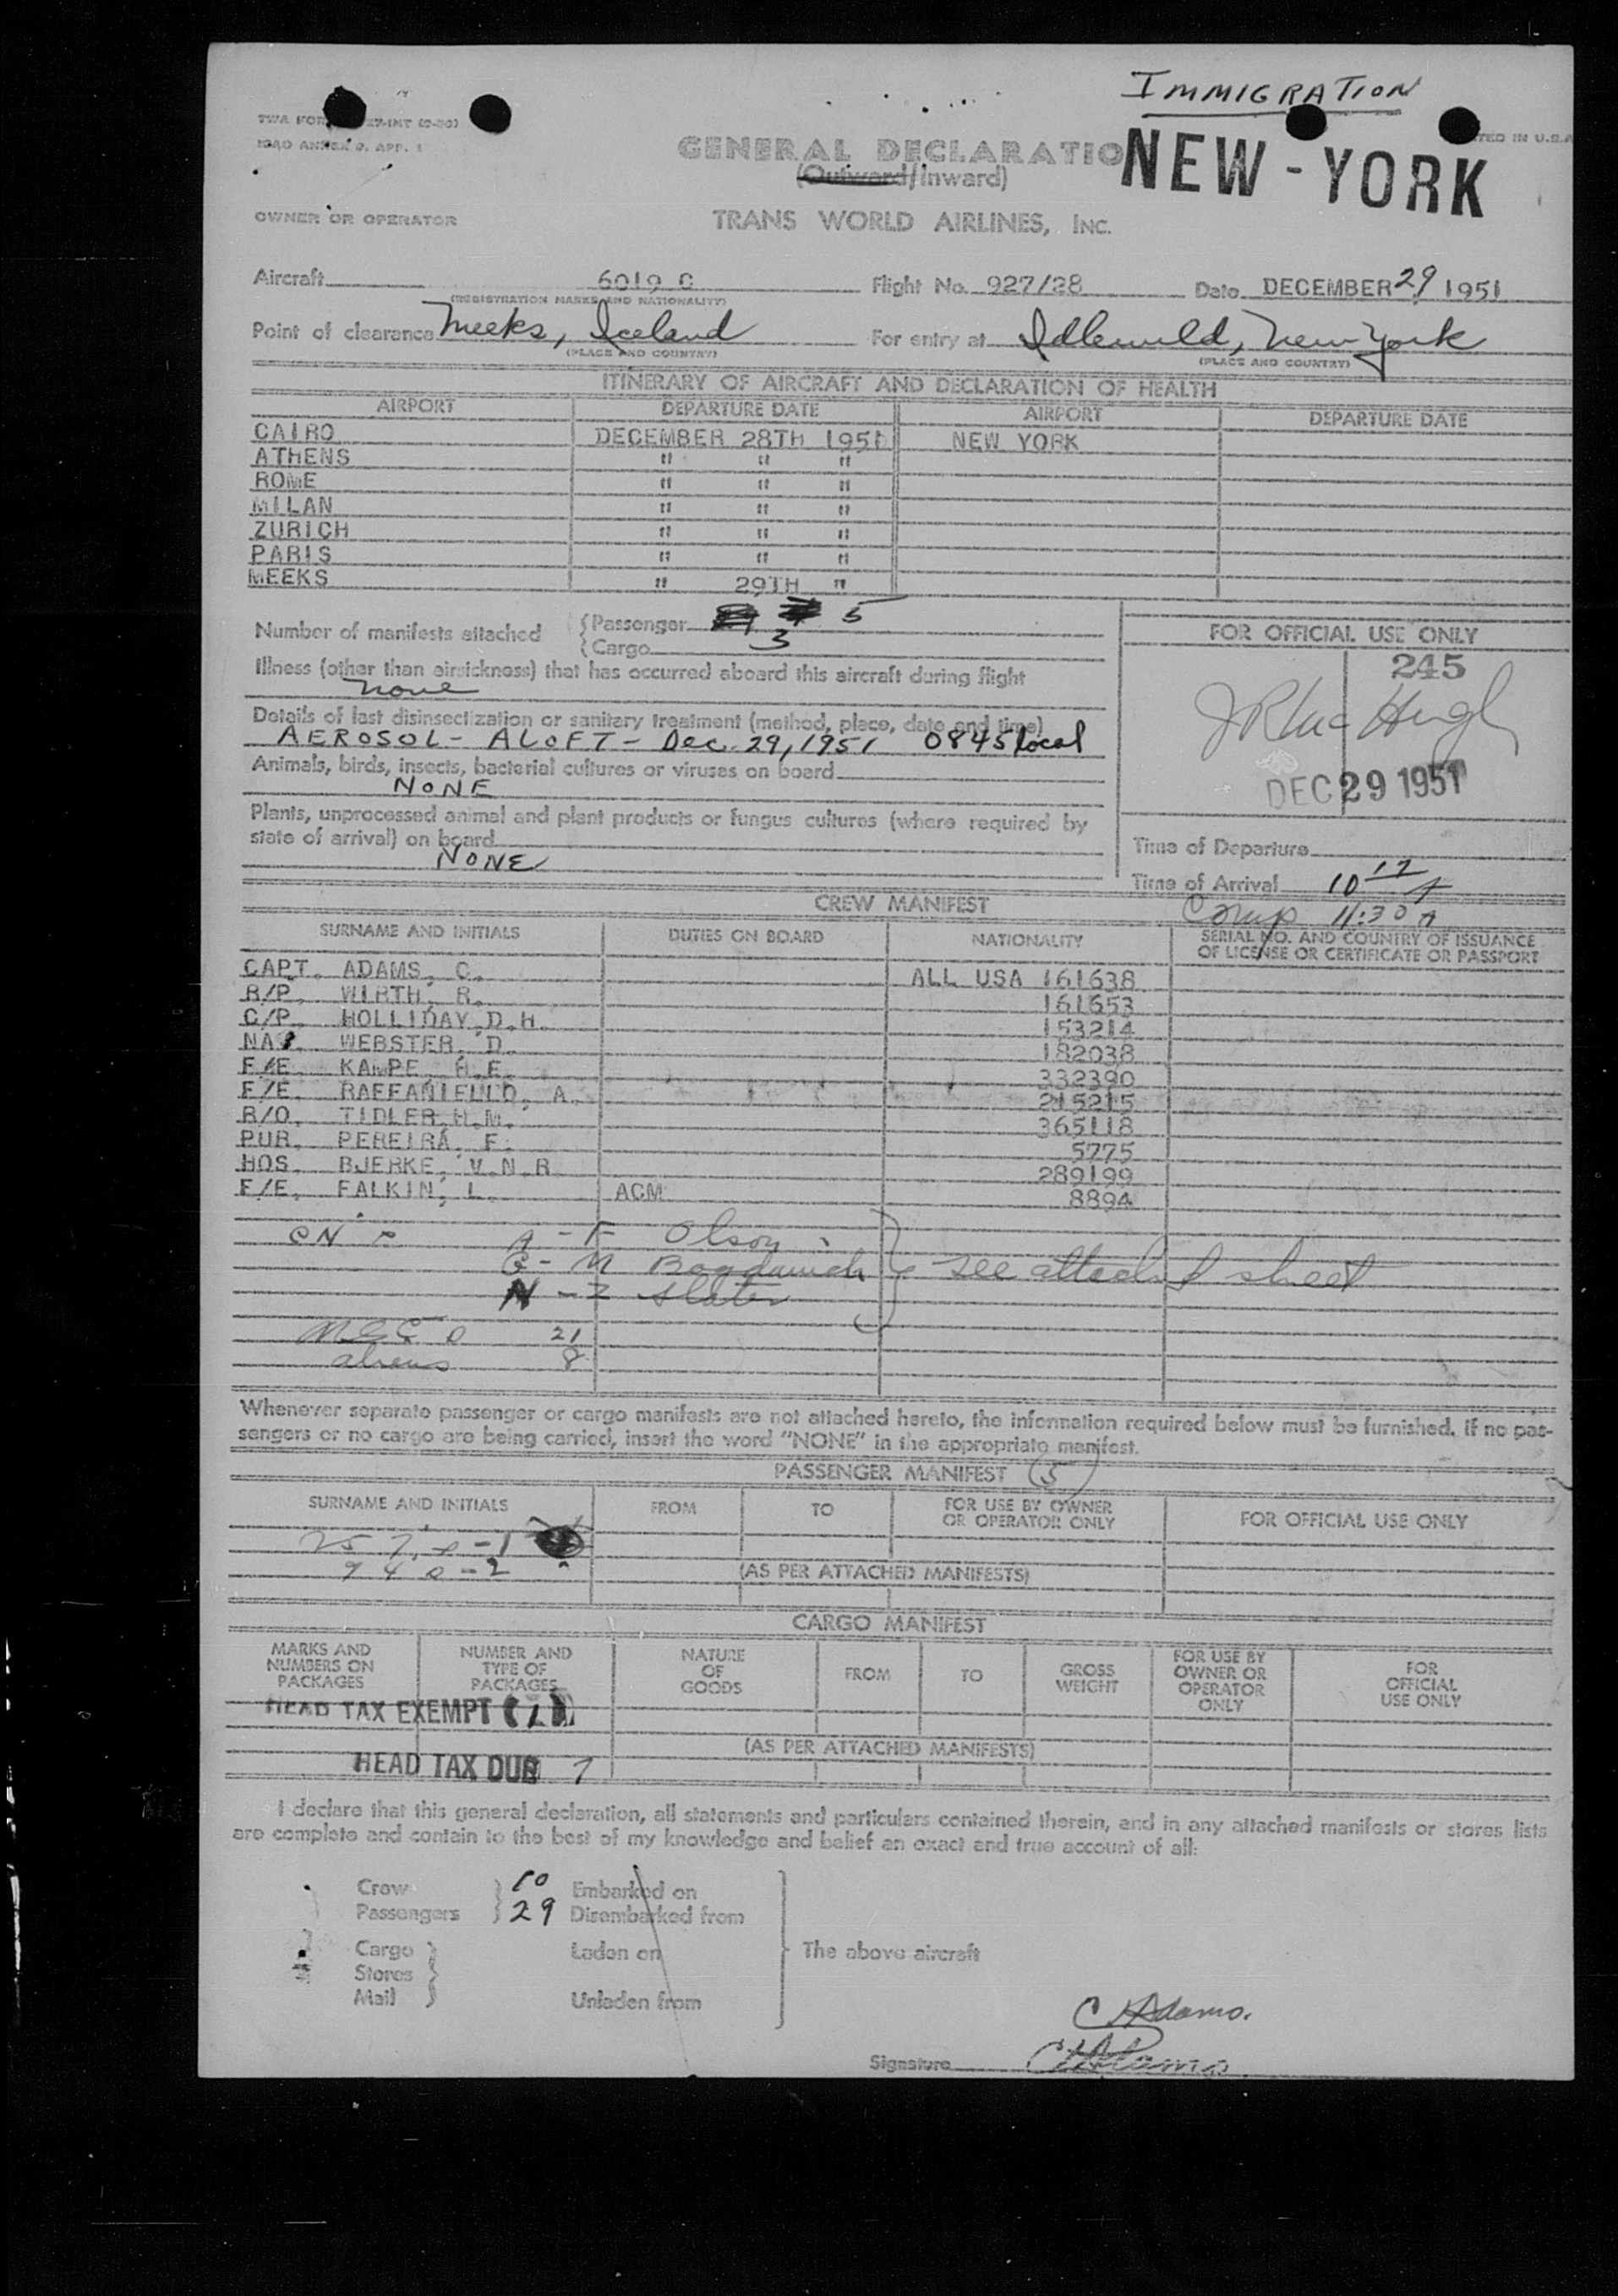 IMMIGRATION
TWA FOR 27-INT
ICAO ANNEX 9. APP. 1
TED IN U.S.A
GENERAL DECLARATIO
NEW-YORK
(Outward/Inward)
OWNER OR OPERATOR
TRANS WORLD AIRLINES, INC.
Aircraft 6019 C Flight No. 927/28 Date DECEMBER 29 1951
(REGISTRATION MARKS AND NATIONALITY)
Point of clearance Meeks, Iceland For entry at Idlewild, New York
(PLACE AND COUNTRY) (PLACE AND COUNTRY)
ITINERARY OF AIRCRAFT AND DECLARATION OF HEALTH
AIRPORT DEPARTURE DATE AIRPORT DEPARTURE DATE
CAIRO DECEMBER 28TH 1951 NEW YORK
ATHENS " " "
ROME " " "
MILAN " " "
ZURICH " " "
PARIS " " "
MEEKS " 29TH "
Number of manifests attached {Passenger 5
{Cargo 3
FOR OFFICIAL USE ONLY
245
Illness (other than airsickness) that has occurred aboard this aircraft during flight
none
Details of last disinsectization or sanitary treatment (method, place, date and time)
AEROSOL- ALOFT- Dec. 29, 1951 0845 local
Animals, birds, insects, bacterial cultures or viruses on board
NONE
DEC 29 1951
Plants, unprocessed animal and plant products or fungus cultures (where required by
state of arrival) on board
NONE
Time of Departure
Time of Arrival 10 17 A
Comp 11:30 A
CREW MANIFEST
SURNAME AND INITIALS DUTIES ON BOARD NATIONALITY SERIAL NO. AND COUNTRY OF ISSUANCE
OF LICENSE OR CERTIFICATE OR PASSPORT
CAPT. ADAMS, C. ALL USA 161638
R/P. WIRTH, R. 161653
C/P. HOLLIDAY, D.H. 153214
NA WEBSTER, D. 182038
F/E. KAMPE, H.E. 332390
F/E. RAFFANIELLO, A. 215215
R/O. TIDLER, H.M. 365118
PUR. PEREIRA, F. 5775
HOS. BJERKE, V.N.R 289199
F/E. FALKIN, L. ACM 8894
A - F Olson
G - M
N - Z Slater
see attached sheet
21
aliens 8
Whenever separate passenger or cargo manifests are not attached hereto, the information required below must be furnished. If no pas-
sengers or no cargo are being carried, insert the word "NONE" in the appropriate manifest.
PASSENGER MANIFEST (5)
SURNAME AND INITIALS FROM TO FOR USE BY OWNER
OR OPERATOR ONLY FOR OFFICIAL USE ONLY
(AS PER ATTACHED MANIFESTS)
CARGO MANIFEST
MARKS AND
NUMBERS ON
PACKAGES NUMBER AND
TYPE OF
PACKAGES NATURE
OF
GOODS FROM TO GROSS
WEIGHT FOR USE BY
OWNER OR
OPERATOR
ONLY FOR
OFFICIAL
USE ONLY
HEAD TAX EXEMPT
(AS PER ATTACHED MANIFESTS)
HEAD TAX DUE 7
I declare that this general declaration, all statements and particulars contained therein, and in any attached manifests or stores lists
are complete and contain to the best of my knowledge and belief an exact and true account of all:
Crew 10 Embarked on
Passengers 29 Disembarked from
Cargo Laden on The above aircraft
Stores
Mail Unladen from
C H Adams.
Signature C H Adams